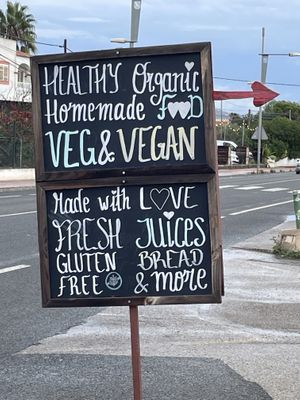 HEALTHY Organic
Homemade FOOD
VEG & VEGAN
Made with LOVE
FRESH JUICES
GLUTEN BREAD
FREE & more